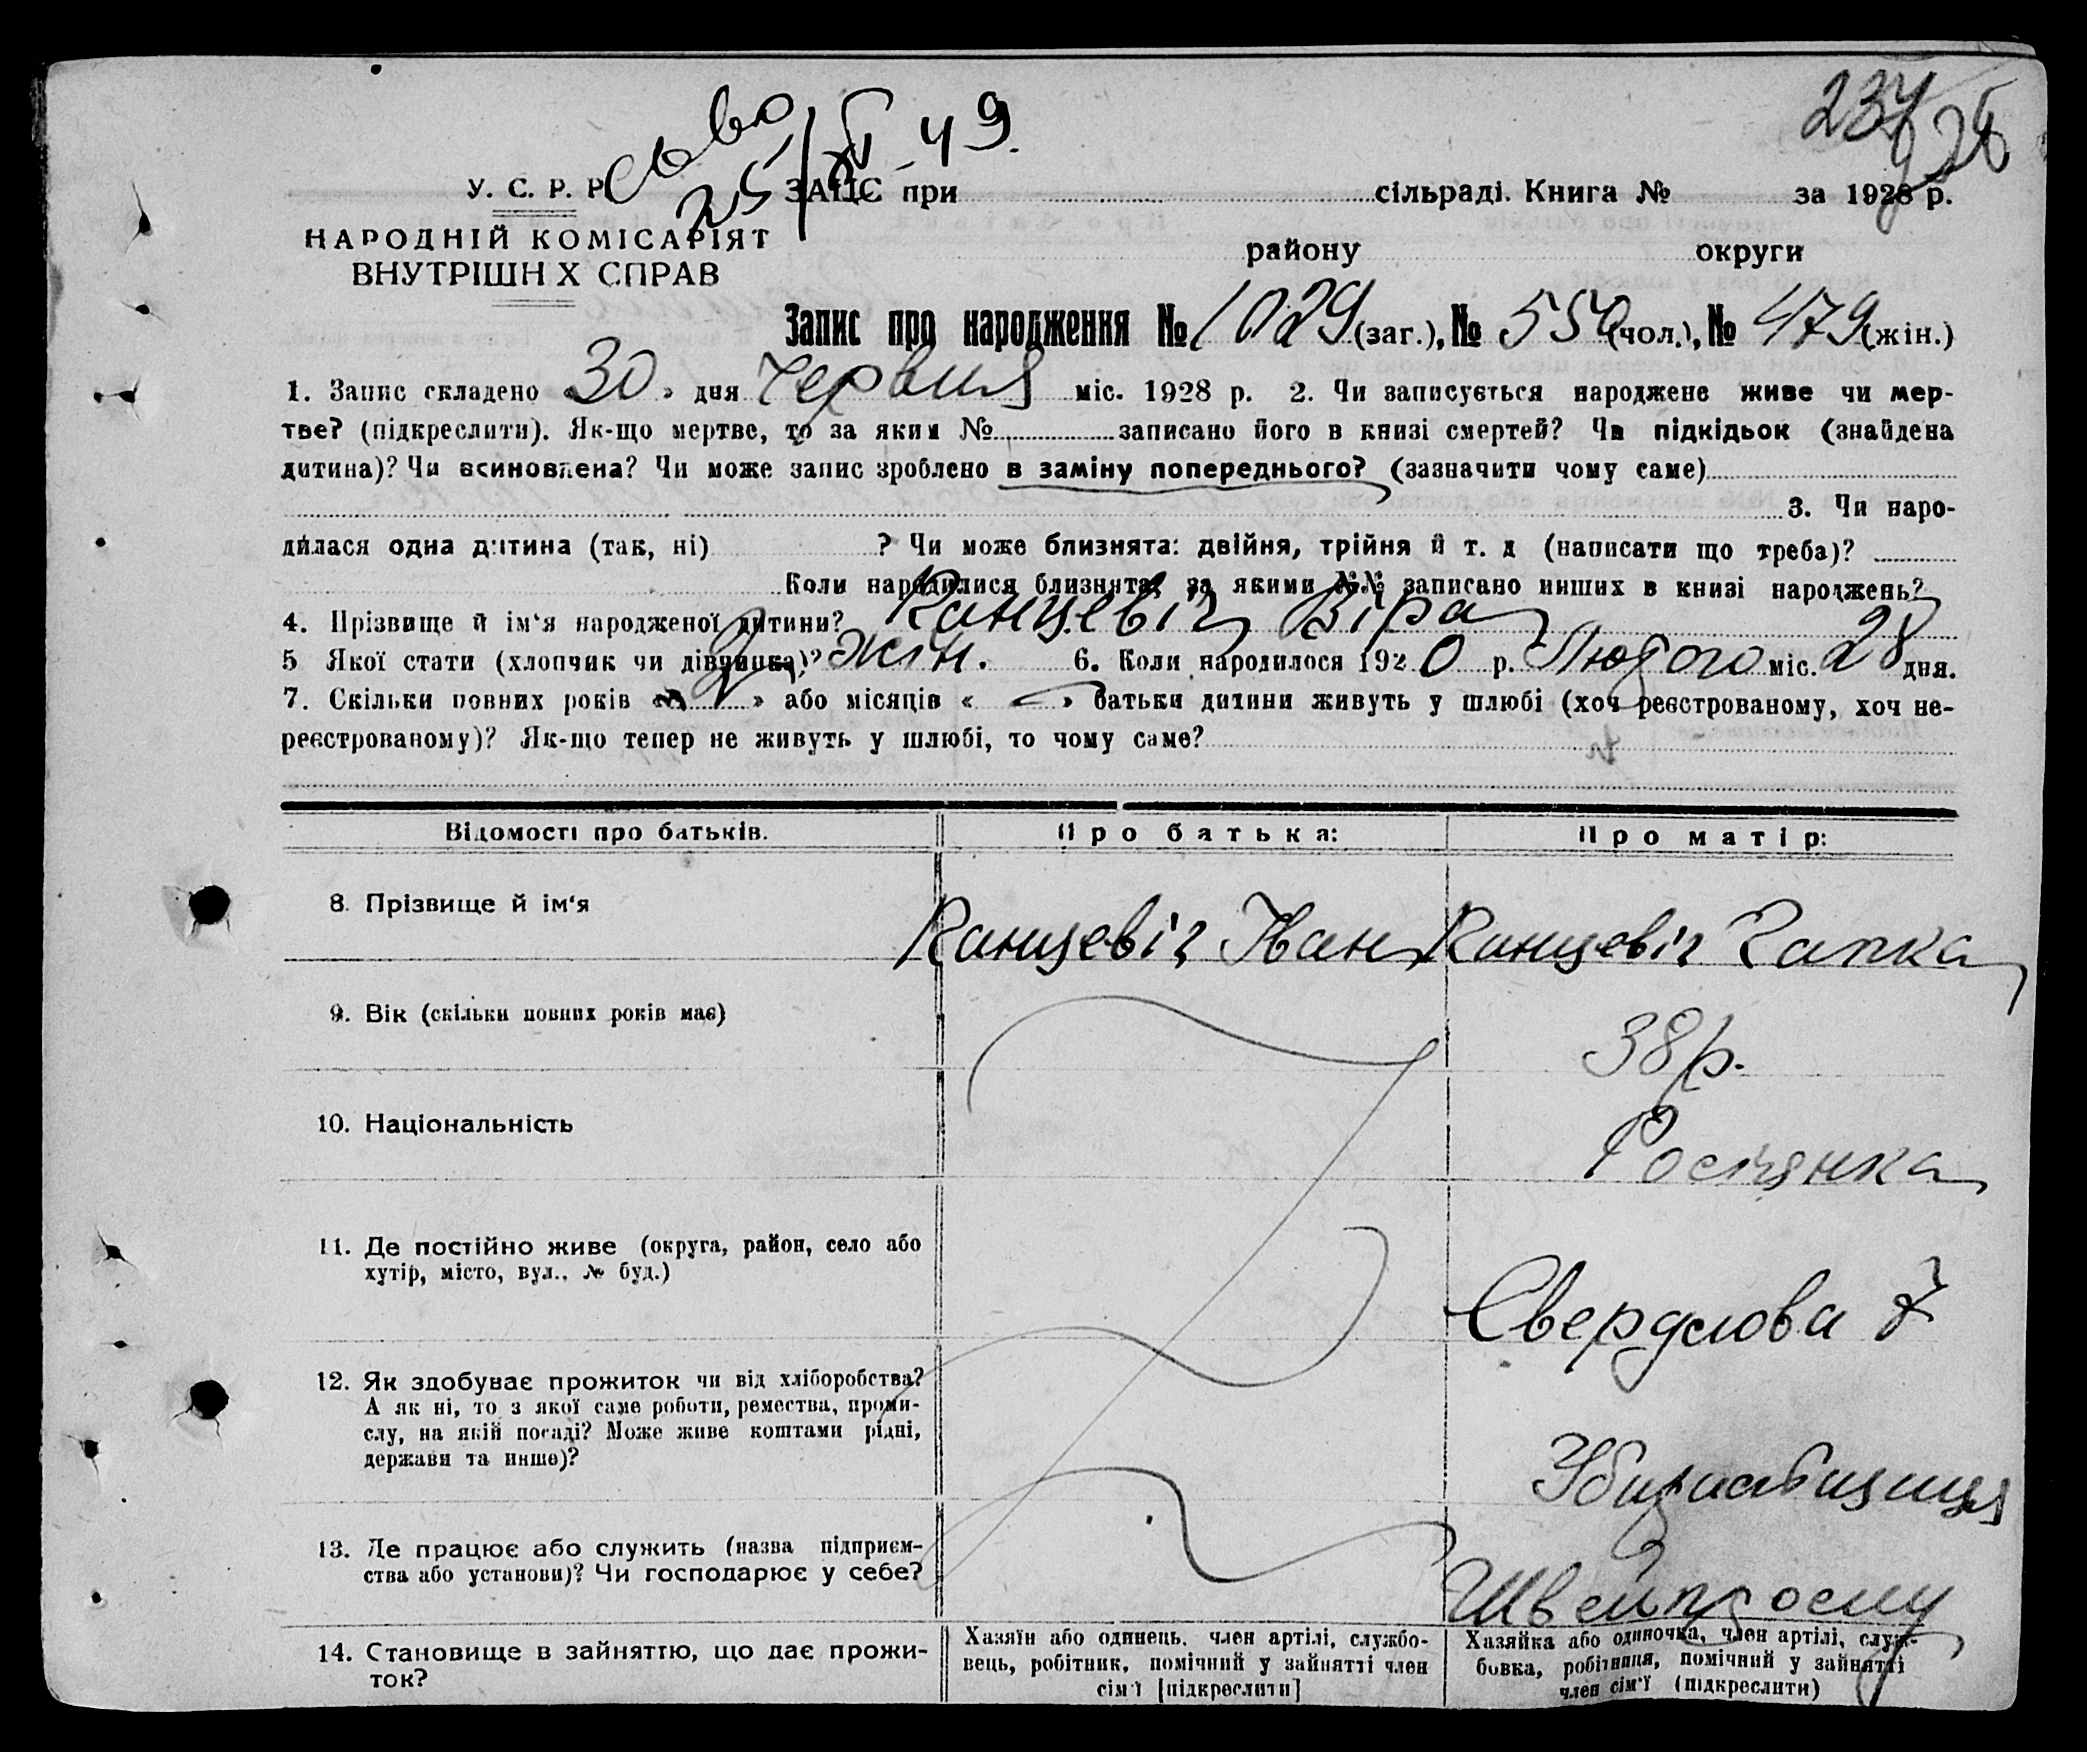 237
25/XI 49.
У. С. Р. Р. ЗАГС при сільраді. Книга № за 1928 р.
НАРОДНІЙ КОМІСАРІЯТ району округи
ВНУТРІШН Х СПРАВ
Запис про народження № 1029 (заг.), № 550 (чол.), № 479 (жін.)
1. Запис складено «30» дня Червня міс. 1928 р. 2. Чи записується народжене живе чи мер-
тве? (підкреслити). Як-що мертве, то за яким № записано його в книзі смертей? Чи підкідьок (знайдена
дитина)? Чи всиновлена? Чи може запис зроблено в заміну попереднього? (зазначити чому саме)
3. Чи наро-
дилася одна дитина (так, ні) ? Чи може близнята: двійня, трійня й т. д (написати що треба)?
Коли народилися близнята, за якими №№ записано инших в книзі народжень?
4. Прізвище й ім'я народженої дитини? Канцевіч Віра
5 Якої стати (хлопчик чи дівчинка)? жін. 6. Коли народилося 1920 р. Лютого міс. 28 дня.
7. Скільки повних років « » або місяців « » батьки дитини живуть у шлюбі (хоч реєстрованому, хоч не-
реєстрованому)? Як-що тепер не живуть у шлюбі, то чому саме?
Відомості про батьків. Про батька: Про матір:
8. Прізвище й ім'я Канцевіч Іван Канцевіч Гапка
9. Вік (скільки повних років має) 38 р.
10. Національність Росіянка
11. Де постійно живе (округа, район, село або
хутір, місто, вул., № буд.) Свердлова 7
12. Як здобуває прожиток чи від хліборобства?
А як ні, то з якої саме роботи, ремества, проми-
слу, на якій посаді? Може живе коштами рідні,
держави та инше)?
13. Де працює або служить (назва підприєм-
ства або установи)? Чи господарює у себе?
14. Становище в зайняттю, що дає прожи-
ток?
Хазяїн або одинець, член артілі, службо-
вець, робітник, помічний у зайнятті член
сім'ї [підкреслити]
Хазяйка або одиночка, член артілі, служ-
бовка, робітниця, помічний у зайнятті
член сім'ї (підкреслити)